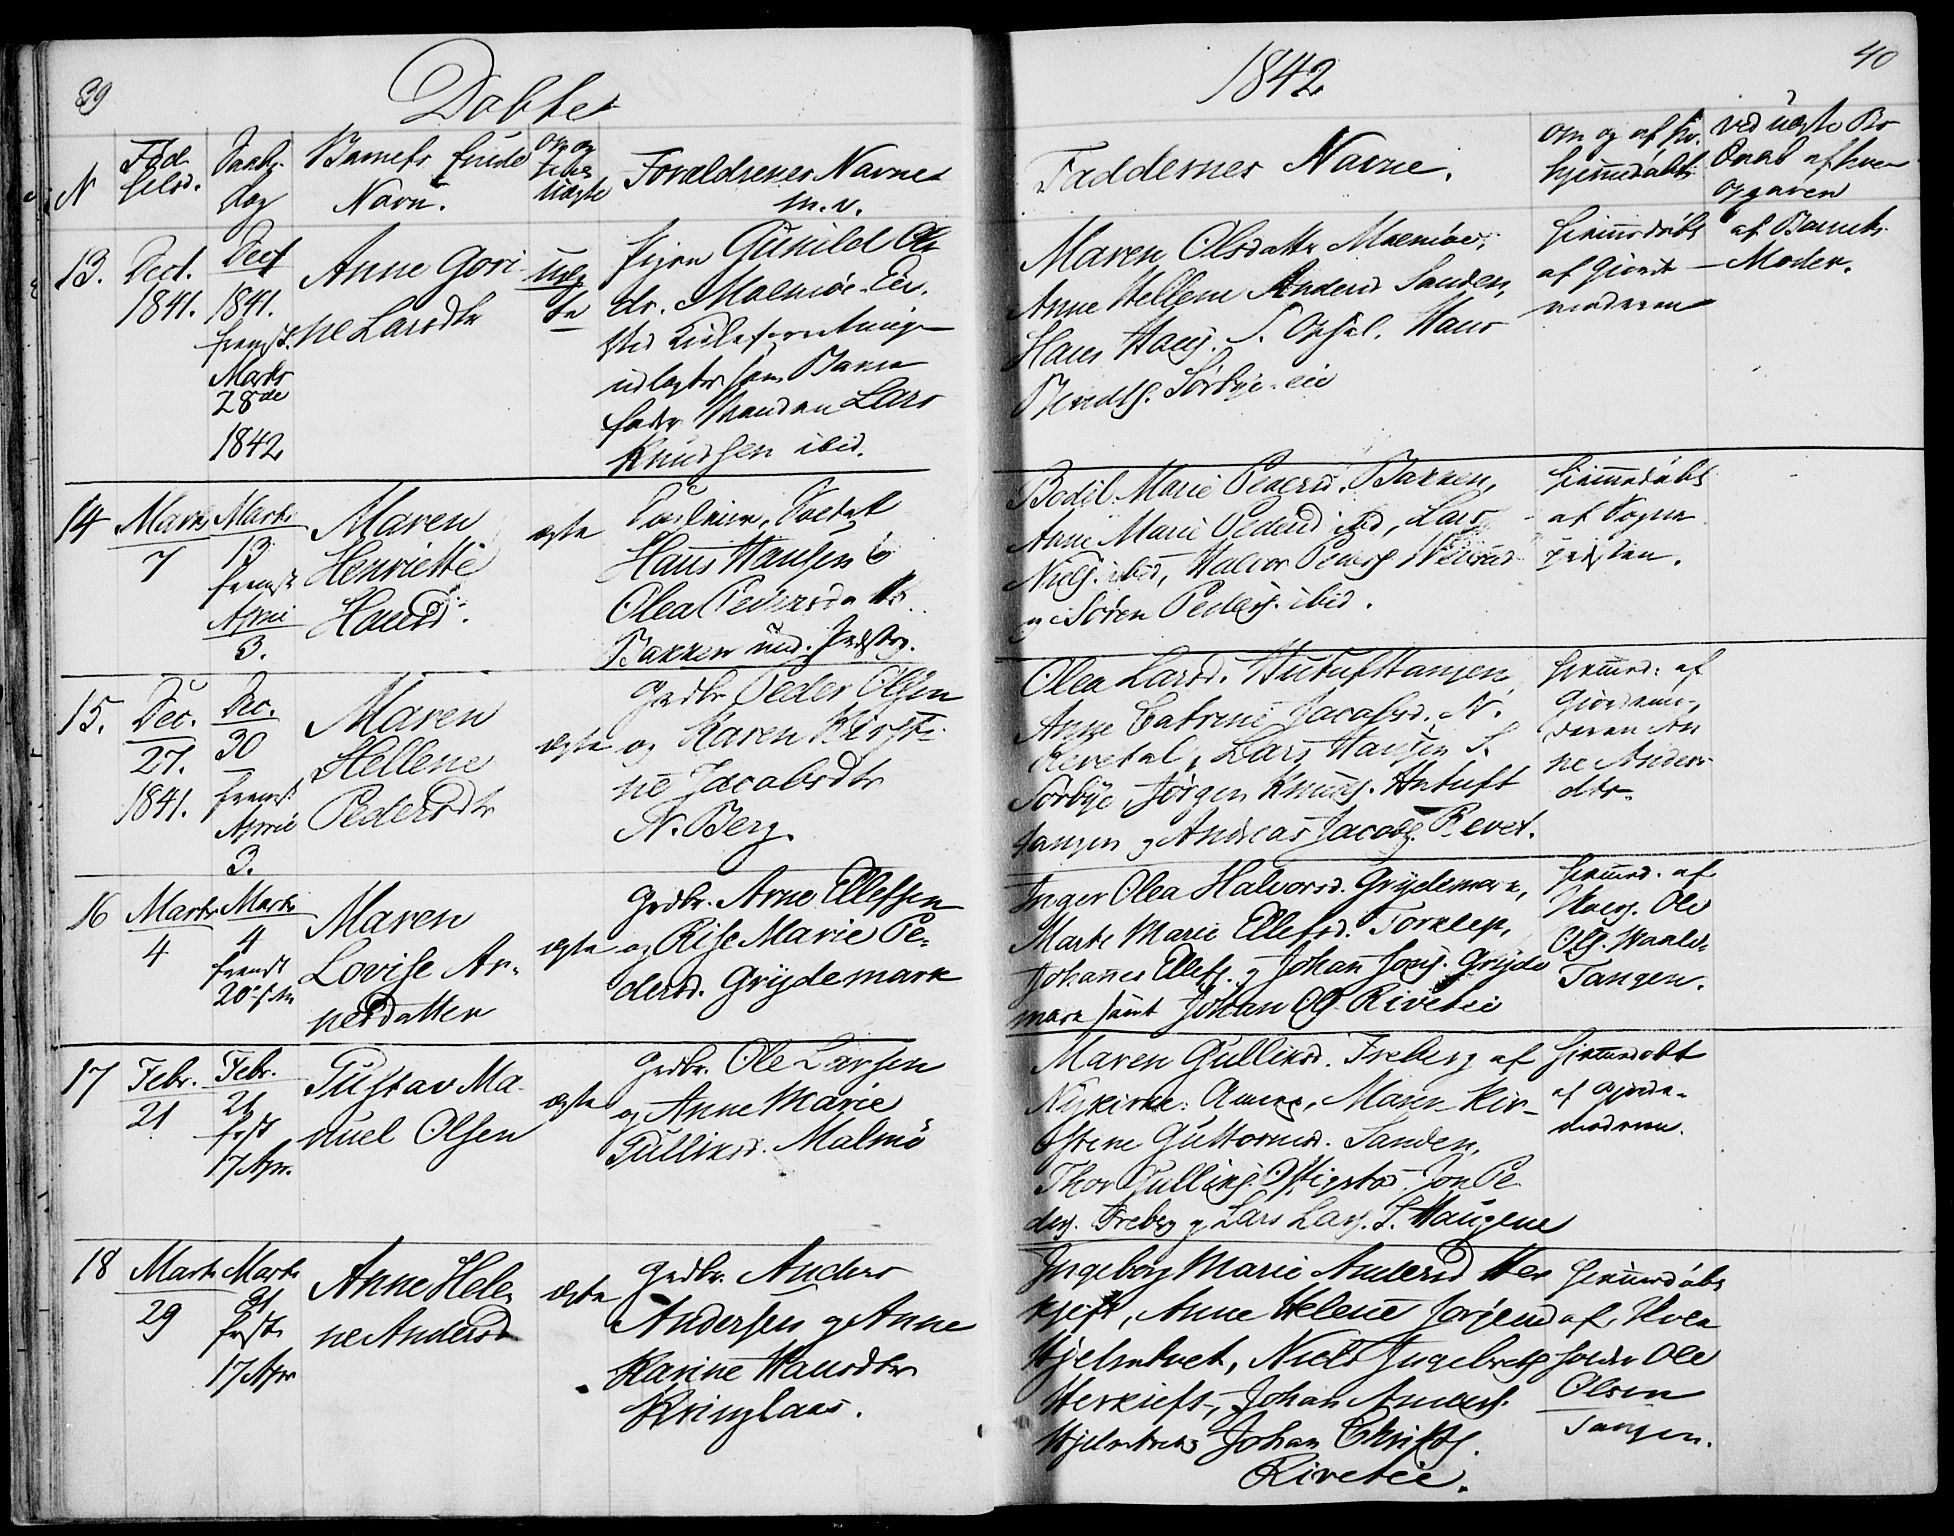 39
Døbte
1842
40
N
Født
Daabs
dag
Barnets fulde
Navn.
Forældrenes Navne
m. v.
Faddernes Navne.
om og af hv.
hjemmedøbt
13.
Dect.
1841.
Dect
1841.
fremst.
Marts
28de
1842
Anne Gori
ne Larsdtr
uæg
te
Pigen Gunild Ols
dr. Malmöe Eie.
udlagt som Barne
fader Manden Lars
Knudsen ibid.
Maren Olsdatter Malmöe,
Anne Hellene Andersd Sanden,
Hans Haug. S. Opsal. Hans
Sörbye eie
hjemmedøbt
af Gjorde
moderen
af Barnets
Moder.
14
Marts
7
Marts
13
fremst
April
3.
Maren
Henriette
Hansd.
ægte
Hans Hansen &
Olea Pedersdatter
Bakken
Bodil Marie Pedersd. Bakken,
Anne Marie Pedersd ibid, Lars
Niels. ibid, Halvor Peders.
og Sören Peders. ibid.
hjemmedøbt
af Sogne
præsten.
15.
Dec.
27.
1841.
Dec.
30
fremst
April
3.
Maren
Hellene
Pedersdtr
ægte
Grdbr Peder Olsen
og Karen Kirsti
ne Jacobsdtr
N. Berg.
Olea Larsd. Hutuftangen,
Anne Catrine Jacobsd. N.
Revetal, Lars Hansen S.
Sörbye, Jörgen Knuds. Hutuft
tangen og Andreas Jacobs. Revet.
hjemmed: af
Gjordemo
deren An
ne Anders
dtr.
16
Marts
4
Marts
4
fremst
Maren
Lovise Ar
nesdatter
ægte
Grdbr. Arne Ellefsen
og Rise Marie Pe
dersd. Grydemark
Inger Olea Halvorsd. Grydemark,
Marte Marie Ellefsd. Torklep,
Johannes Ellefs. og Johan Jons. Gryde
mark samt Johan Ols. Riveteie
hjemmed. af
Huusf. Ole
Ols.
Tangen.
17
Febr.
21
Febr.
21
frst
17 Apr.
Gustav Ma
nuel Olsen
ægte
Grdbr. Ole Larsen
og Anne Marie
Gulliksd. Malmö
Maren Gulliksd. Freberg af
Nykirke: Annex, Maren Kir
stine Guttormsd. Sanden,
Thor Gulliks. Jon Pe
ders. Freberg og Lars Lars. S. Haugene
hjemmedøbt
af Gjorde
moderen.
18
Marts
29
Marts
31
frst
17 Apr
Anne Hele
ne Andersd
ægte
Grdbr. Anders
Andersen og Anne
Karine Hansdtr
Kringlaas.
Ingeborg Marie Andersd Her
kjeft, Anne Helene Jörgensd
Hjelmtvet, Niels Ingebrets
Herkieft, Johan Anders.
Johan Christs.
Riveteie.
hjemmedøbt
af Huus
fader Ole
Olsen
Tangen.